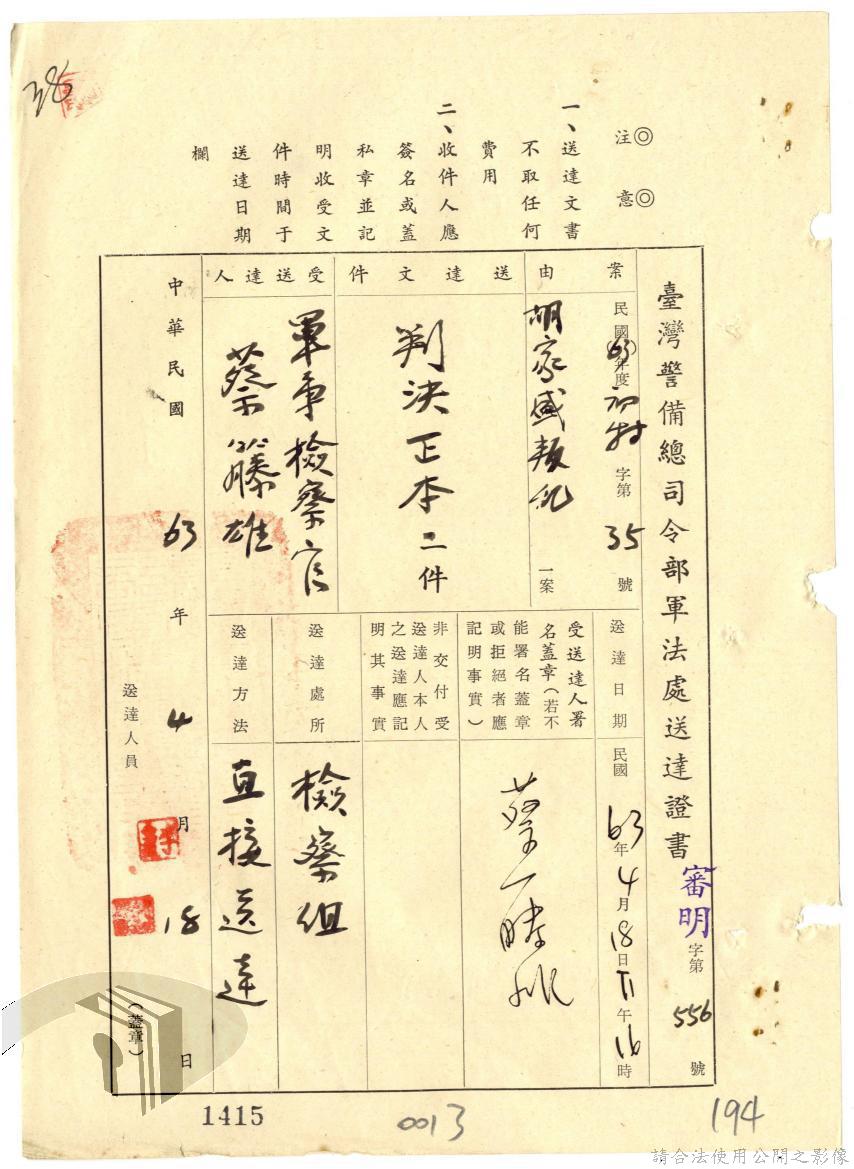 38
◎注意◎
一、送達文書
不取任何
費用
二、收件人應
簽名或蓋
私章並記
明收受文
件時間于
送達日期
欄
臺灣警備總司令部軍法處送達證書 審明 字第 556 號
案由
民國(63)年度 初特 字第 35 號
胡家盛叛亂 一案
送達文件
判決正本二件
受送達人
軍事檢察官
蔡籐雄
送達日期
民國 63年4月18日下午16時
受送達人署
名蓋章(若不
能署名蓋章
或拒絕者應
記明事實)
非交付受
送達人本人
之送達應記
明其事實
送達處所
檢察組
送達方法
直接送達
中華民國 63 年 4 月 18 日
送達人員
(蓋章)
1415
0013
194
請合法使用公開之影像